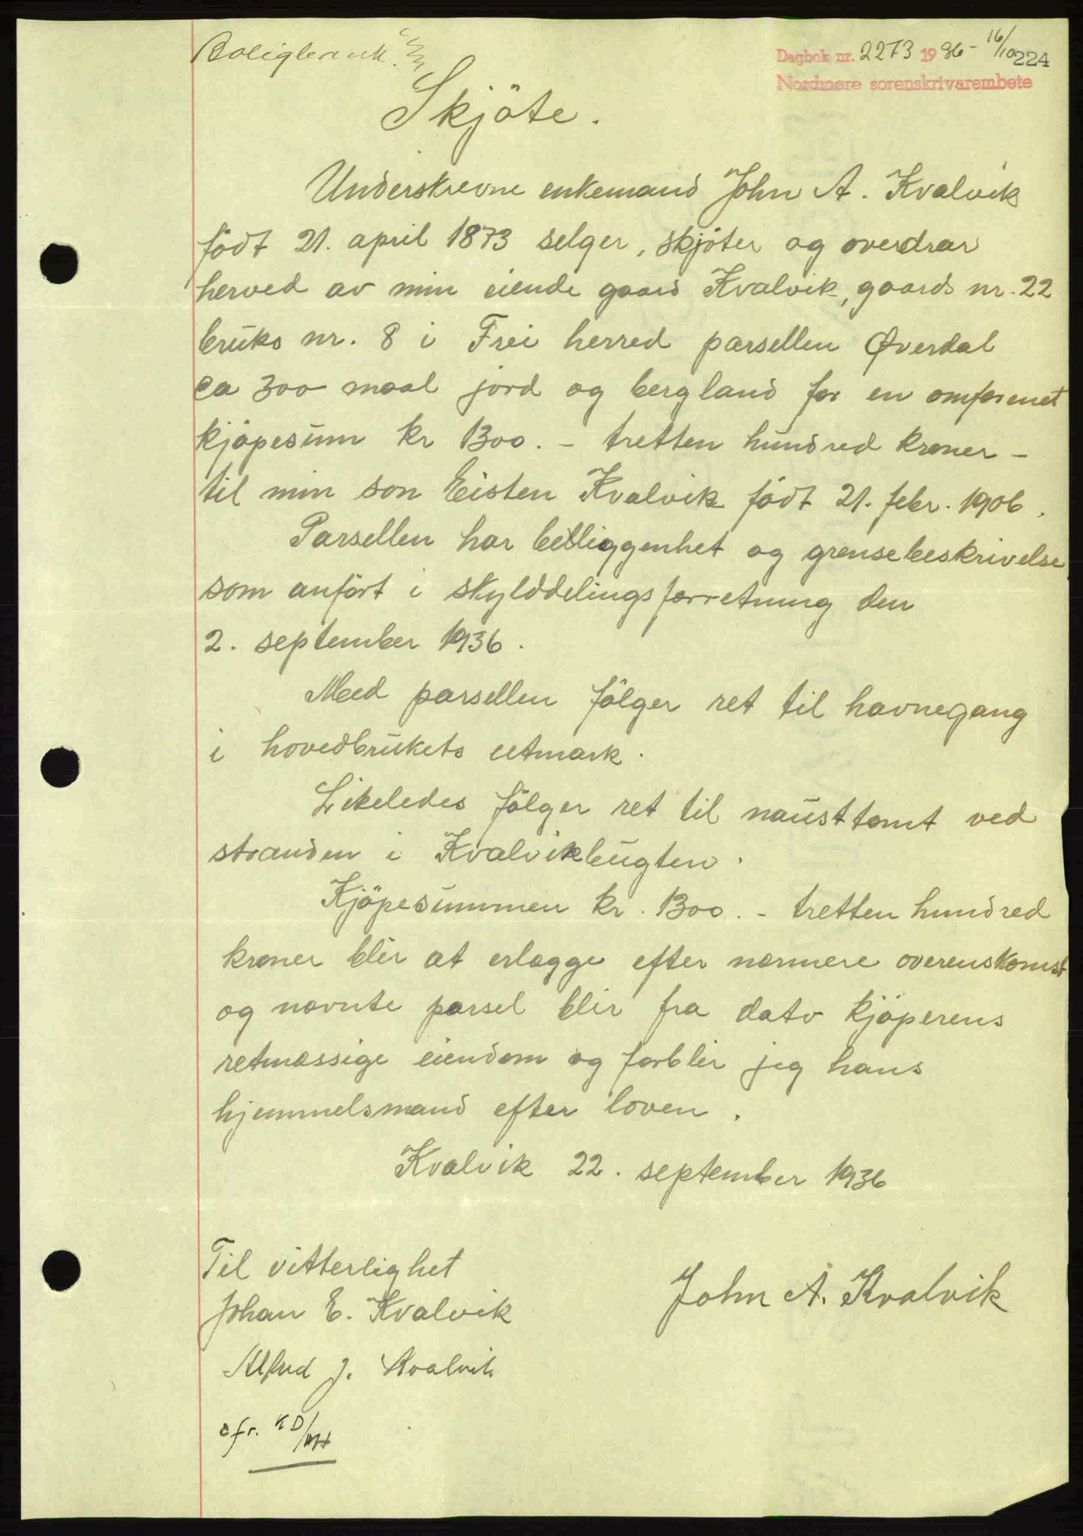 Dagbok nr. 2273 1936 - 16/10 224
Nordmøre sorenskrivarembete
Skjöte.
Underskrevne enkemand John A. Kvalvik
födt 21. april 1873 selger, skjöter og overdrar
herved av min eiende gaard Kvalvik, gaards nr. 22
bruks nr. 8 i Frei herred parsellen Øverdal
ca 300 maal jord og bergland for en omforenet
kjöpesum kr 1300. - tretten hundred kroner -
til min son Eisten Kvalvik födt 21. febr. 1906.
Parsellen har beliggenhet og grensebeskrivelse
som anfört i skylddelingsforretning den
2. september 1936.
Med parsellen fölger ret til havnegang
i hovedbrukets utmark.
Likeledes fölger ret til nausttomt ved
stranden i Kvalvikbugten.
Kjöpesummen kr. 1300. - tretten hundred
kroner blir at erlægge efter nærmere overenskomst
og nævnte parsel blir fra dato kjöperens
retmæssige eiendom og forblir jeg hans
hjemmelsmand efter loven.
Kvalvik 22. september 1936
Til vitterlighet
John A. Kvalvik
Johan E. Kvalvik
Alfred J. Kvalvik